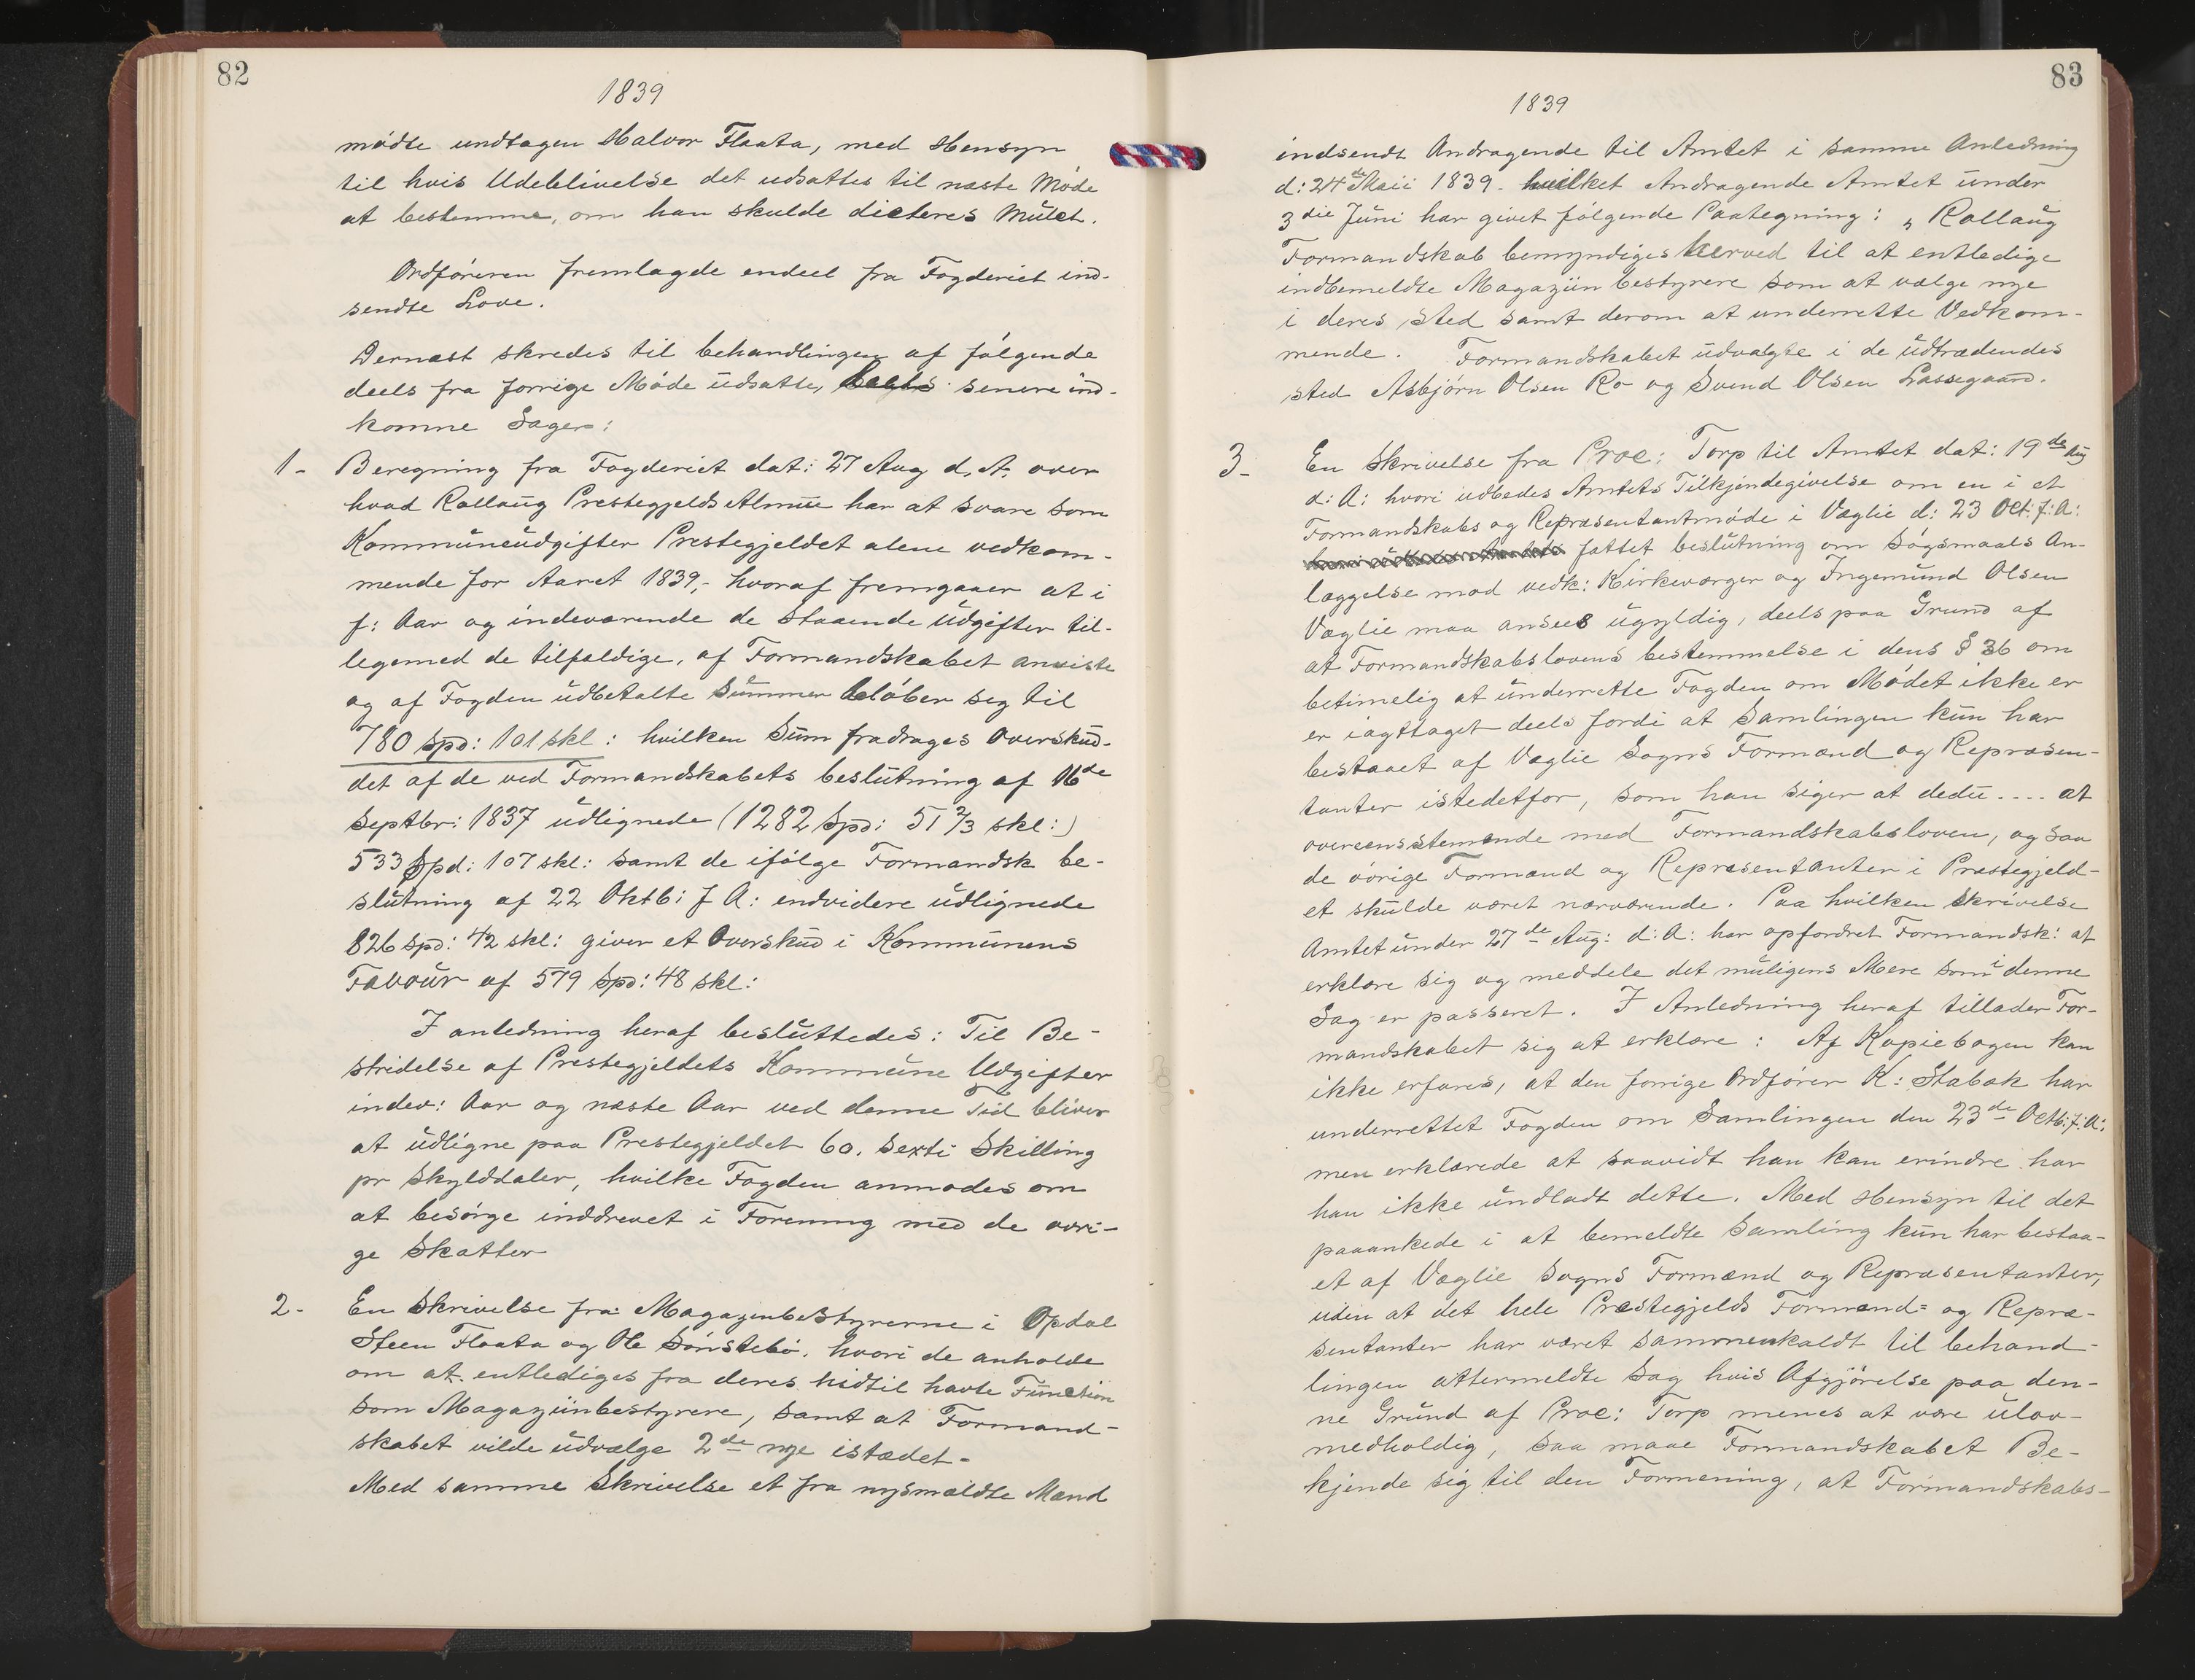 82
1839
mødte undtagen Halvor Flaata, med Hensyn
til hvis Udeblivelse det udsattes til næste Møde
at bestemme, om han skulde dicteres Mulct.
Ordføreren fremlagde endeel fra Fogderiet ind-
sendte Love.
Dernæst skredes til behandlingen af følgende
deels fra forrige Møde udsatte, deels senere ind-
komne Sager:
1- Beregning fra Fogderiet dat: 27 Aug d. A. over
hvad Rollaug Prestegjelds Almue har at svare som
Kommuneudgifter Prestegjeldet alene vedkom-
mende for Aaret 1839,- hvoraf fremgaaer at i
f: Aar og indeværende de staaende Udgifter til-
legemed de tilfældige, af Formandskabet anviste
og af Fogden udbetalte Summer beløber seg til
780 Spd: 101 skl: hvilken Sum fradrages Overskud-
det af de ved Formandskabets beslutning af 16de
Septbr: 1837 udlignede (1282 Spd: 51 2/3 skl:)
533 Spd: 107 skl: samt de ifølge Formandsk be-
slutning af 22 Oktb: f A: endvidere udlignede
826 Spd: 42 skl: giver et Overskud i Kommunens
Favour af 579 Spd: 48 skl:
I anledning heraf besluttedes: Til Be-
stridelse af Prestegjeldets Kommune Udgifter
indev: Aar og næste Aar ved denne Tid bliver
at udligne paa Prestegjeldet 60. Sexti Skilling
pr Skylddaler, hvilke Fogden anmodes om
at besørge inddrevet i Forening med de øvri-
ge Skatter
2- En Skrivelse fra Magazinbestyrerne i Opdal
Steen Flaata og Ole Sønstebø, hvori de anholde
om at entlediges fra deres hidtil havte Function
som Magaziinbestyrere, samt at Formand-
skabet vilde udvælge 2de nye istædet-
Med samme Skrivelse et fra nysmældte Mænd
83
1839
indsendt Andragende til Amtet i samme Anledning
d: 24de Maii 1839- hvilket Andragende Amtet under
3die Juni har givet følgende Paategning: „ Rollaug
Formandskab bemyndiges herved til at entledige
indbemeldte Magaziin bestyrere som at vælge nye
i deres sted samt derom at underrette Vedkom-
mende. Formandskabet udvalgte i de udtrædendes
sted Asbjørn Olsen Ro og Svend Olsen Lassegaard.
3- En Skrivelse fra Proc: Torp til Amtet dat: 19de Aug
d: A: hvori udbedes Amtets Tilkjendegivelse om en i et
Formandskabs og Repræsentantmøde i Væglie d: 23 Oct: f: A:
fattet beslutning om Søgsmaals An-
læggelse mod vedk: Kirkeværger og Ingemund Olsen
Væglie maa ansees ugyldig, deels paa Grund af
at Formandskabslovens bestemmelse i dens § 36 om
betimelig at underrette Fogden om Mødet ikke er
er iagttaget deels fordi at Samlingen kun har
bestaaet af Væglie Sogns Formænd og Repræsen-
tanter istedetfor, som han siger at dedu.... at
overeensstemende med Formandskabsloven, og saa
de øvrige Formænd og Repræsentanter i Præstegjeld-
et skulde været nærværende. Paa hvilken Skrivelse
Amtet under 27de Aug: d: A: har opfordret Formandsk: at
erklære sig og meddele det muligens Mere som i denne
Sag er passeret. I Anledning heraf tillader For-
mandskabet sig at erklære: Af Kopiebogen kan
ikke erfares, at den forrige Ordfører K: Stabæk har
underrettet Fogden om Samlingen den 23de Octb: f: A:
men erklærede at saavidt han kan erindre har
han ikke undladt dette. Med Hensyn til det
paaankede i at bemeldte Samling kun har bestaa-
et af Væglie Sogns Formænd og Repræsentanter,
uden at det hele Præstegjelds Formænd= og Repræ-
sentanter har været sammenkaldt til behand-
lingen attermeldte Sag hvis Afgjørelse paa den-
ne Grund af Proc: Torp menes at være ulov-
medholdig, saa maae Formandskabet Be-
kjende sig til den Formening, at Formandskabs-